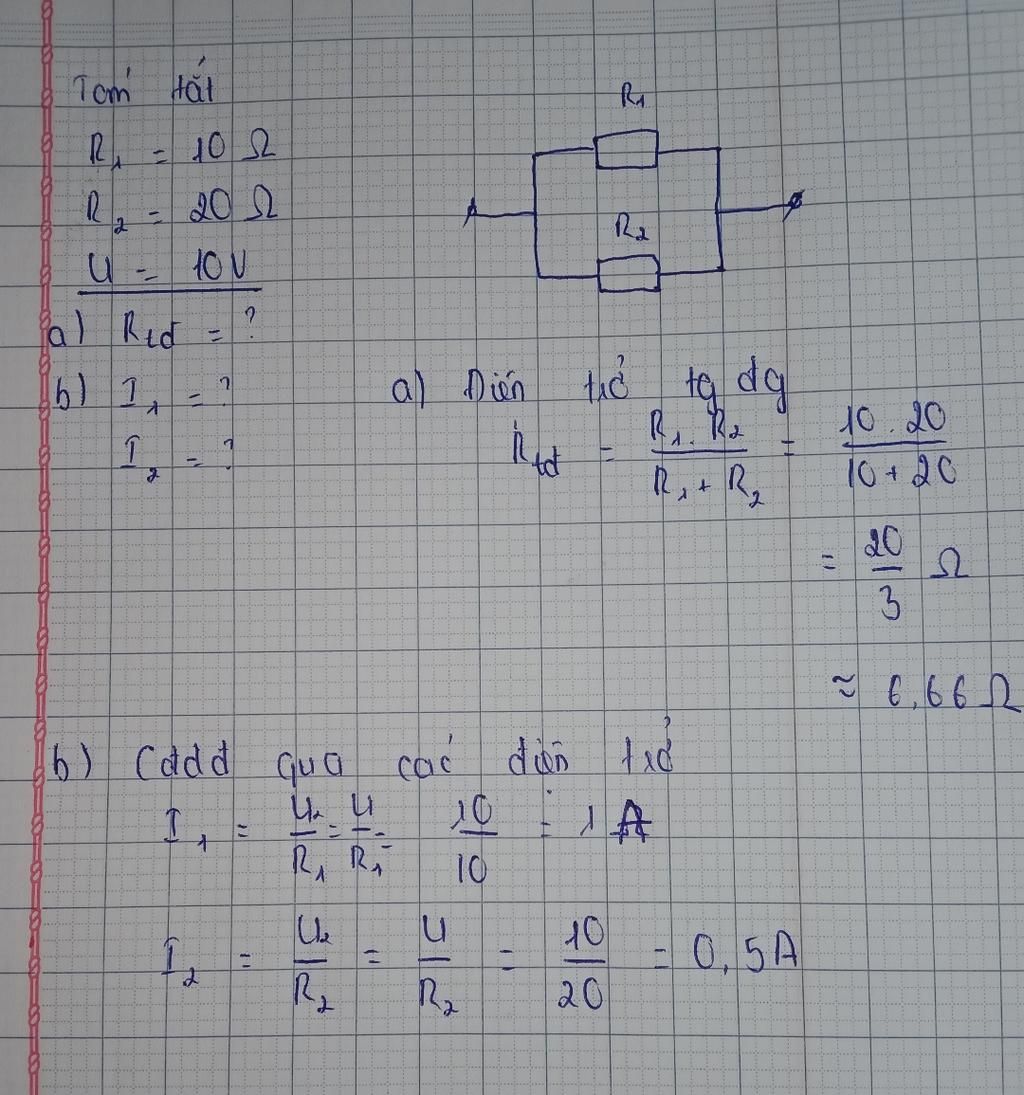 Tóm tắt
R₁ = 10 Ω
R₂ = 20 Ω
U = 10V
a) Rtđ = ?
b) I₁ = ?
I₂ = ?
R₁
R₂
a) Điện trở tg đg
Rtđ = R₁.R₂ / R₁+R₂ = 10.20 / 10+20
= 20/3 Ω
≈ 6,66 Ω
b) Cđdđ qua các điện trở
I₁ = U₁/R₁ = U/R₁ = 10/10 = 1 A
I₂ = U₂/R₂ = U/R₂ = 10/20 = 0,5A